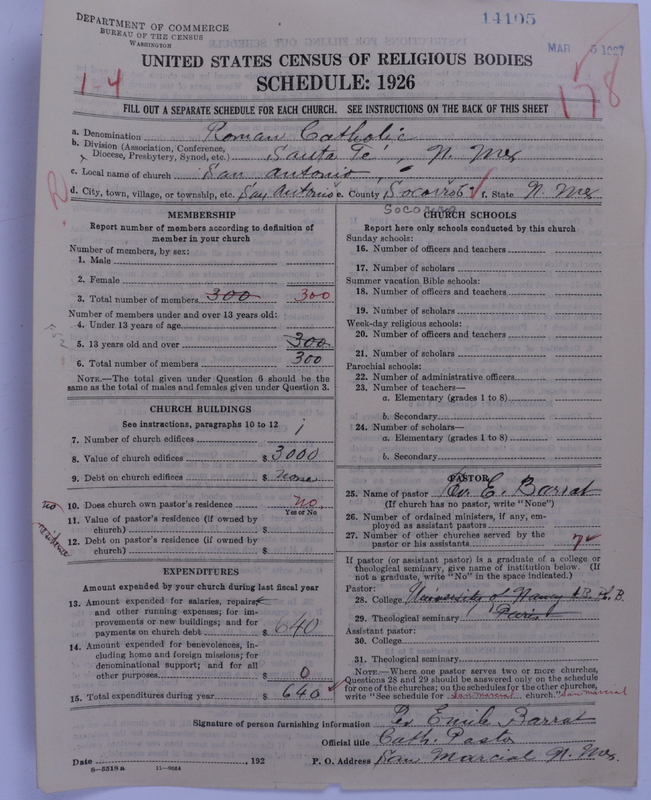 14105
DEPARTMENT OF COMMERCE
BUREAU OF THE CENSUS
WASHINGTON
MAR 5 1927
UNITED STATES CENSUS OF RELIGIOUS BODIES
SCHEDULE: 1926
1-4
178
FILL OUT A SEPARATE SCHEDULE FOR EACH CHURCH. SEE INSTRUCTIONS ON THE BACK OF THIS SHEET
a. Denomination Roman Catholic
b. Division (Association, Conference,
Diocese, Presbytery, Synod, etc.) Santa Fe, N. Mex
c. Local name of church San Antonio,
d. City, town, village, or township, etc. San Antonio e. County Socorro f. State N. Mex
Socorro
MEMBERSHIP
Report number of members according to definition of
member in your church
Number of members, by sex:
1. Male
2. Female
3. Total number of members 300 300
Number of members under and over 13 years old:
4. Under 13 years of age
5. 13 years old and over 300
6. Total number of members 300
NOTE.—The total given under Question 6 should be the
same as the total of males and females given under Question 3.
CHURCH BUILDINGS
See instructions, paragraphs 10 to 12
7. Number of church edifices 1
8. Value of church edifices $ 3000
9. Debt on church edifices $ none
no residence
10. Does church own pastor's residence no
Yes or No
11. Value of pastor's residence (if owned by
church) $
12. Debt on pastor's residence (if owned by
church) $
EXPENDITURES
Amount expended by your church during last fiscal year
13. Amount expended for salaries, repairs
and other running expenses; for im-
provements or new buildings; and for
payments on church debt $ 640
14. Amount expended for benevolences, in-
cluding home and foreign missions; for
denominational support; and for all
other purposes $ 0
15. Total expenditures during year $ 640
CHURCH SCHOOLS
Report here only schools conducted by this church
Sunday schools:
16. Number of officers and teachers
17. Number of scholars
Summer vacation Bible schools:
18. Number of officers and teachers
19. Number of scholars
Week-day religious schools:
20. Number of officers and teachers
21. Number of scholars
Parochial schools:
22. Number of administrative officers
23. Number of teachers—
a. Elementary (grades 1 to 8)
b. Secondary
24. Number of scholars—
a. Elementary (grades 1 to 8)
b. Secondary
PASTOR
25. Name of pastor E. Barrat
(If church has no pastor, write "None")
26. Number of ordained ministers, if any, em-
ployed as assistant pastors
27. Number of other churches served by the
pastor or his assistants 7
If pastor (or assistant pastor) is a graduate of a college or
theological seminary, give name of institution below. (If
not a graduate, write "No" in the space indicated.)
Pastor:
28. College University of Nancy
29. Theological seminary Paris
Assistant pastor:
30. College
31. Theological seminary
NOTE.—Where one pastor serves two or more churches,
Questions 28 and 29 should be answered only on the schedule
for one of the churches; on the schedules for the other churches,
write "See schedule for San Marcial church." San Marcial
Signature of person furnishing information Emile Barrat
Official title Cath. Pastor
Date , 192 P. O. Address San Marcial N. Mex.
8—5518 a 11—9034